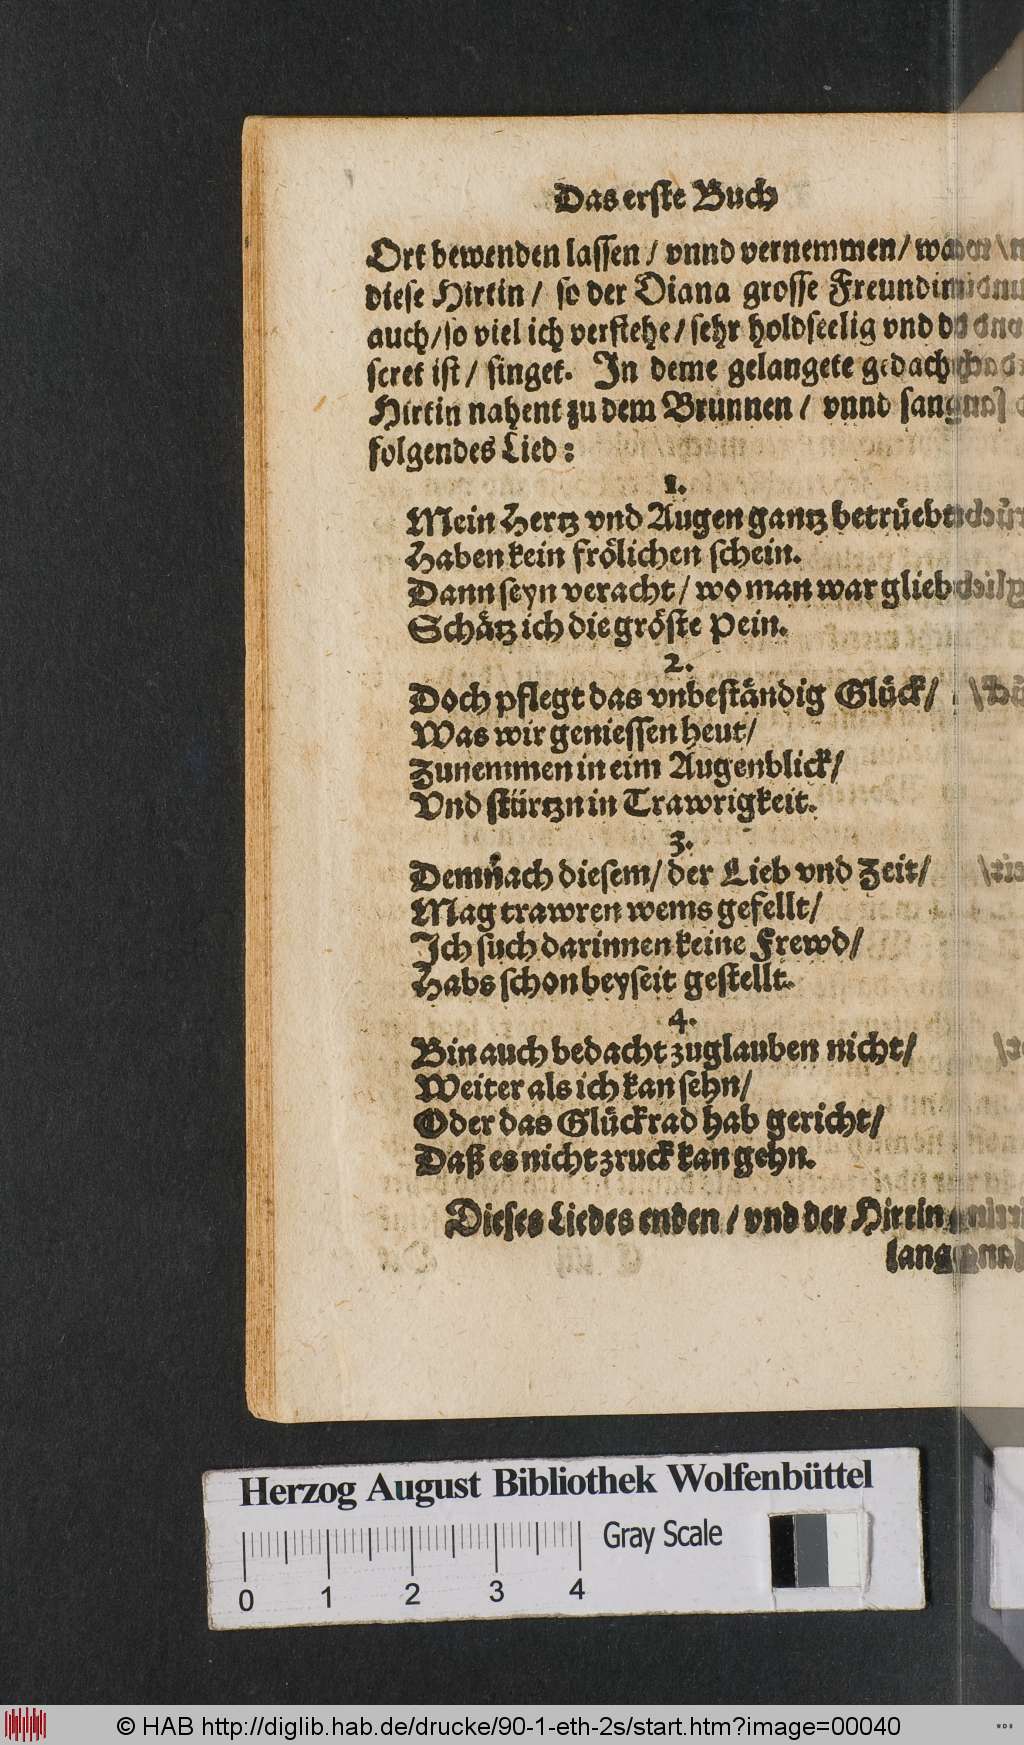 Das erste Buch
Ort bewenden lassen / vnnd vernemmen /
diese Hirtin / so der Diana grosse
auch / so viel ich verstehe / sehr holdseelig vnd
scret ist / singet. In deme gelangete
Hirtin nahent zu dem Brunnen / vnnd sang
folgendes Lied:
1.
Mein Hertz vnd Augen gantz betrüebt
Haben kein frölichen schein.
Dann seyn veracht / wo man war glieb
Schätz ich die gröste Pein.
2.
Doch pflegt das vnbeständig Glück /
Was wir geniessen heut /
Zunemmen in eim Augenblick /
Vnd stürtzn in Trawrigkeit.
3.
Demnach diesem / der Lieb vnd Zeit /
Mag trawren wems gefellt /
Ich such darinnen keine Frewd /
Habs schon beyseit gestellt.
4.
Bin auch bedacht zuglauben nicht /
Weiter als ich kan sehn /
Oder das Glückrad hab gericht /
Daß es nicht zruck kan gehn.
Dieses Liedes enden / vnd der Hirtin
lang
Herzog August Bibliothek Wolfenbüttel
Gray Scale
0 1 2 3 4
© HAB http://diglib.hab.de/drucke/90-1-eth-2s/start.htm?image=00040